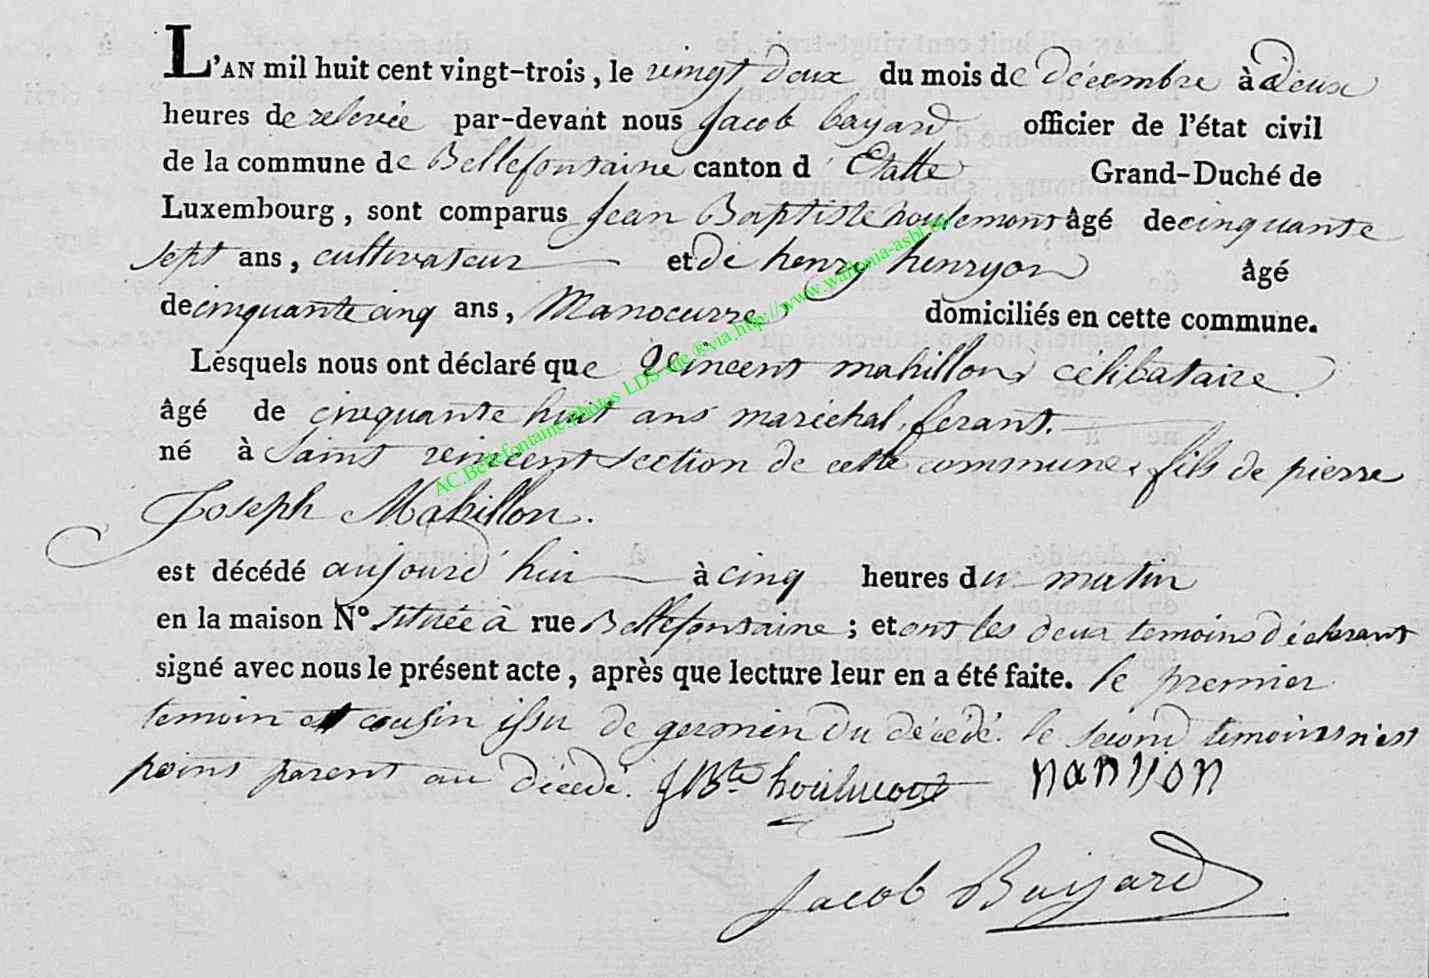 L'AN mil huit cent vingt-trois, le vingt deux du mois de décembre à deux
heures de relevée par-devant nous Jacob bayard officier de l'état civil
de la commune de Bellefontaine canton d'Etalle Grand-Duché de
Luxembourg, sont comparus Jean Baptiste houlemont âgé de cinquante
sept ans, cultivateur et de henry henryon âgé
de cinquante cinq ans, Manoeuvre domiciliés en cette commune.
Lesquels nous ont déclaré que Vincent mahillon, célibataire
âgé de cinquante huit ans maréchal, ferant.
né à Saint vincent section de cette commune, fils de pierre
Joseph Mahillon.
est décédé aujourd'hui à cinq heures du matin
en la maison N° située à rue Bellefontaine ; et ont les deux temoins déclarant
signé avec nous le présent acte, après que lecture leur en a été faite. le premier
temoin est cousin issu de germin du décédé. le second temoins n'est
point parent au décédé. JBte houlmont
Jacob Bayard
AC.Bellefontaine photos LDS site @via.http://www.wallonia-asbl.be